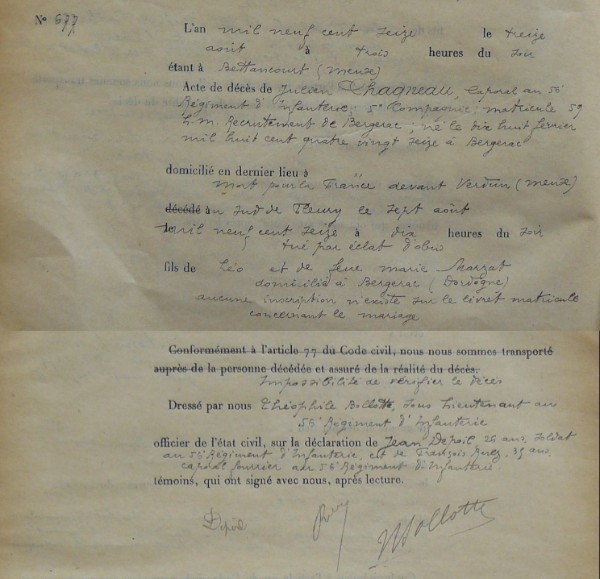 N° 677
L'an mil neuf cent seize le treize
août à trois heures du soir
étant à Bettancourt (meuse)
Acte de décès de Julien Chagneau, caporal au 55e
Régiment d'Infanterie, 5e Compagnie, matricule 59
Recrutement de Bergerac ; né le dix huit février
mil huit cent quatre vingt seize à Bergerac
domicilié en dernier lieu à
mort pour la France devant Verdun (meuse)
décédé au sud de Fleury le sept août
mil neuf cent seize à dix heures du soir
tué par éclat d'obus
fils de Léo et de feue marie
domiciliés à Bergerac (Dordogne)
aucune inscription n'existe sur le livret matricule
concernant le mariage
Conformément à l'article 77 du Code civil, nous nous sommes transporté
auprès de la personne décédée et assuré de la réalité du décès.
Impossibilité de vérifier le décès
Dressé par nous Théophile Bollotte, sous Lieutenant au
55e Régiment d'Infanterie
officier de l'état civil, sur la déclaration de Jean 26 ans, soldat
au 55e Régiment d'Infanterie, et de François 35 ans,
caporal fourrier au 55e Régiment d'Infanterie
témoins, qui ont signé avec nous, après lecture.
Bollotte